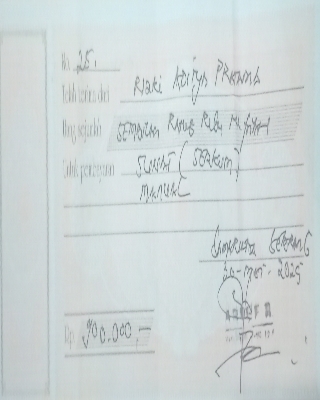 No. 25.
Telah terima dari Rizki Aditya Pratama
Uang sejumlah SEMBILAN RATUS RIBU RUPIAH
Untuk pembayaran SUNAT (SEALKUM)
MANUAL
SERPONG
30 - mei - 2025
Rp 900.000,-